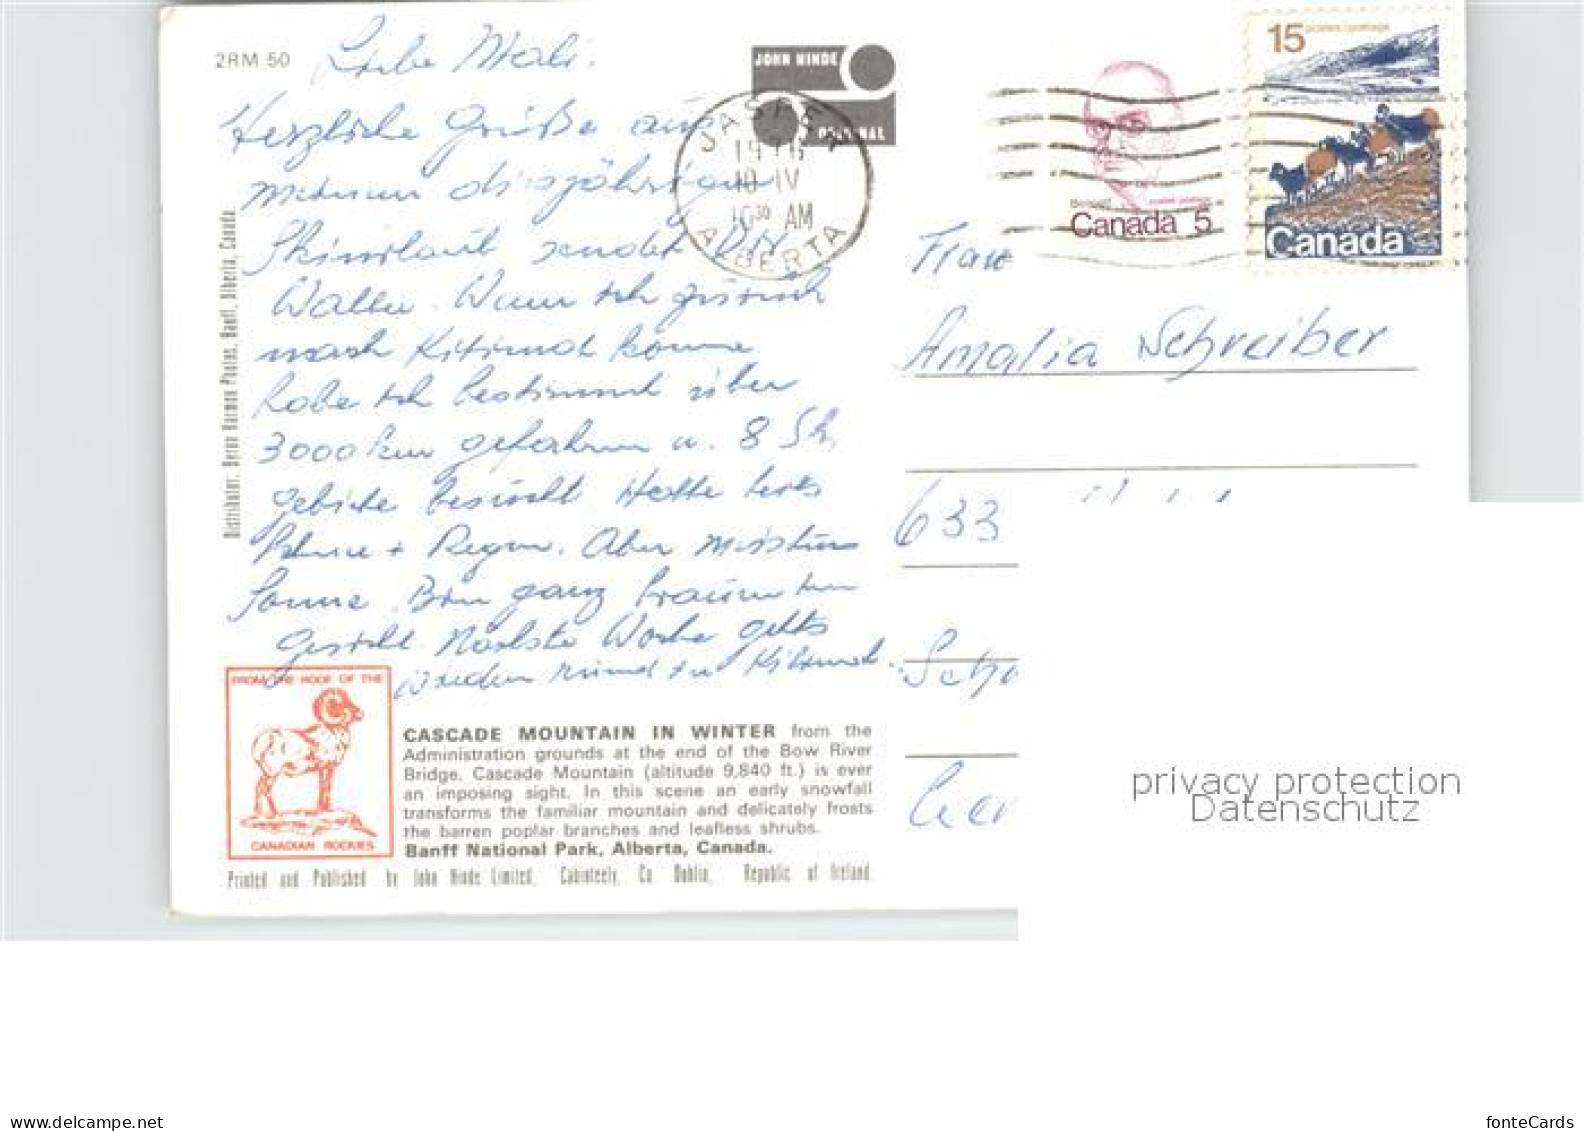 2RM 50
Liebe Mali.
Herzliche Grüße aus
meinem diesjährigen
Skiurlaub sendet Dir
Walter. Wenn ich zurück
nach Kitimat komme
habe ich bestimmt über
3000 km gefahren u. 8 Ski
gebiete besucht Hatte teils
Schnee + Regen. Aber meistens
Sonne. Bin ganz braun im
Gesicht. Nächste Woche gehts
wieder rund in Kitimat.
JOHN HINDE
ORIGINAL
JASPER
10 IV
10³⁰ AM
ALBERTA
Canada 5
15 postes postage
Canada
Frau
Amalia Schreiber
633
privacy protection
Datenschutz
Distributor, Byron Harmon Photos, Banff, Alberta, Canada.
FROM THE ROOF OF THE
CANADIAN ROCKIES
CASCADE MOUNTAIN IN WINTER from the
Administration grounds at the end of the Bow River
Bridge. Cascade Mountain (altitude 9,840 ft.) is ever
an imposing sight. In this scene an early snowfall
transforms the familiar mountain and delicately frosts
the barren poplar branches and leafless shrubs.
Banff National Park, Alberta, Canada.
Printed and Published by John Hinde Limited, Cabinteely, Co. Dublin, Republic of Ireland.
www.delcampe.net
fonteCards